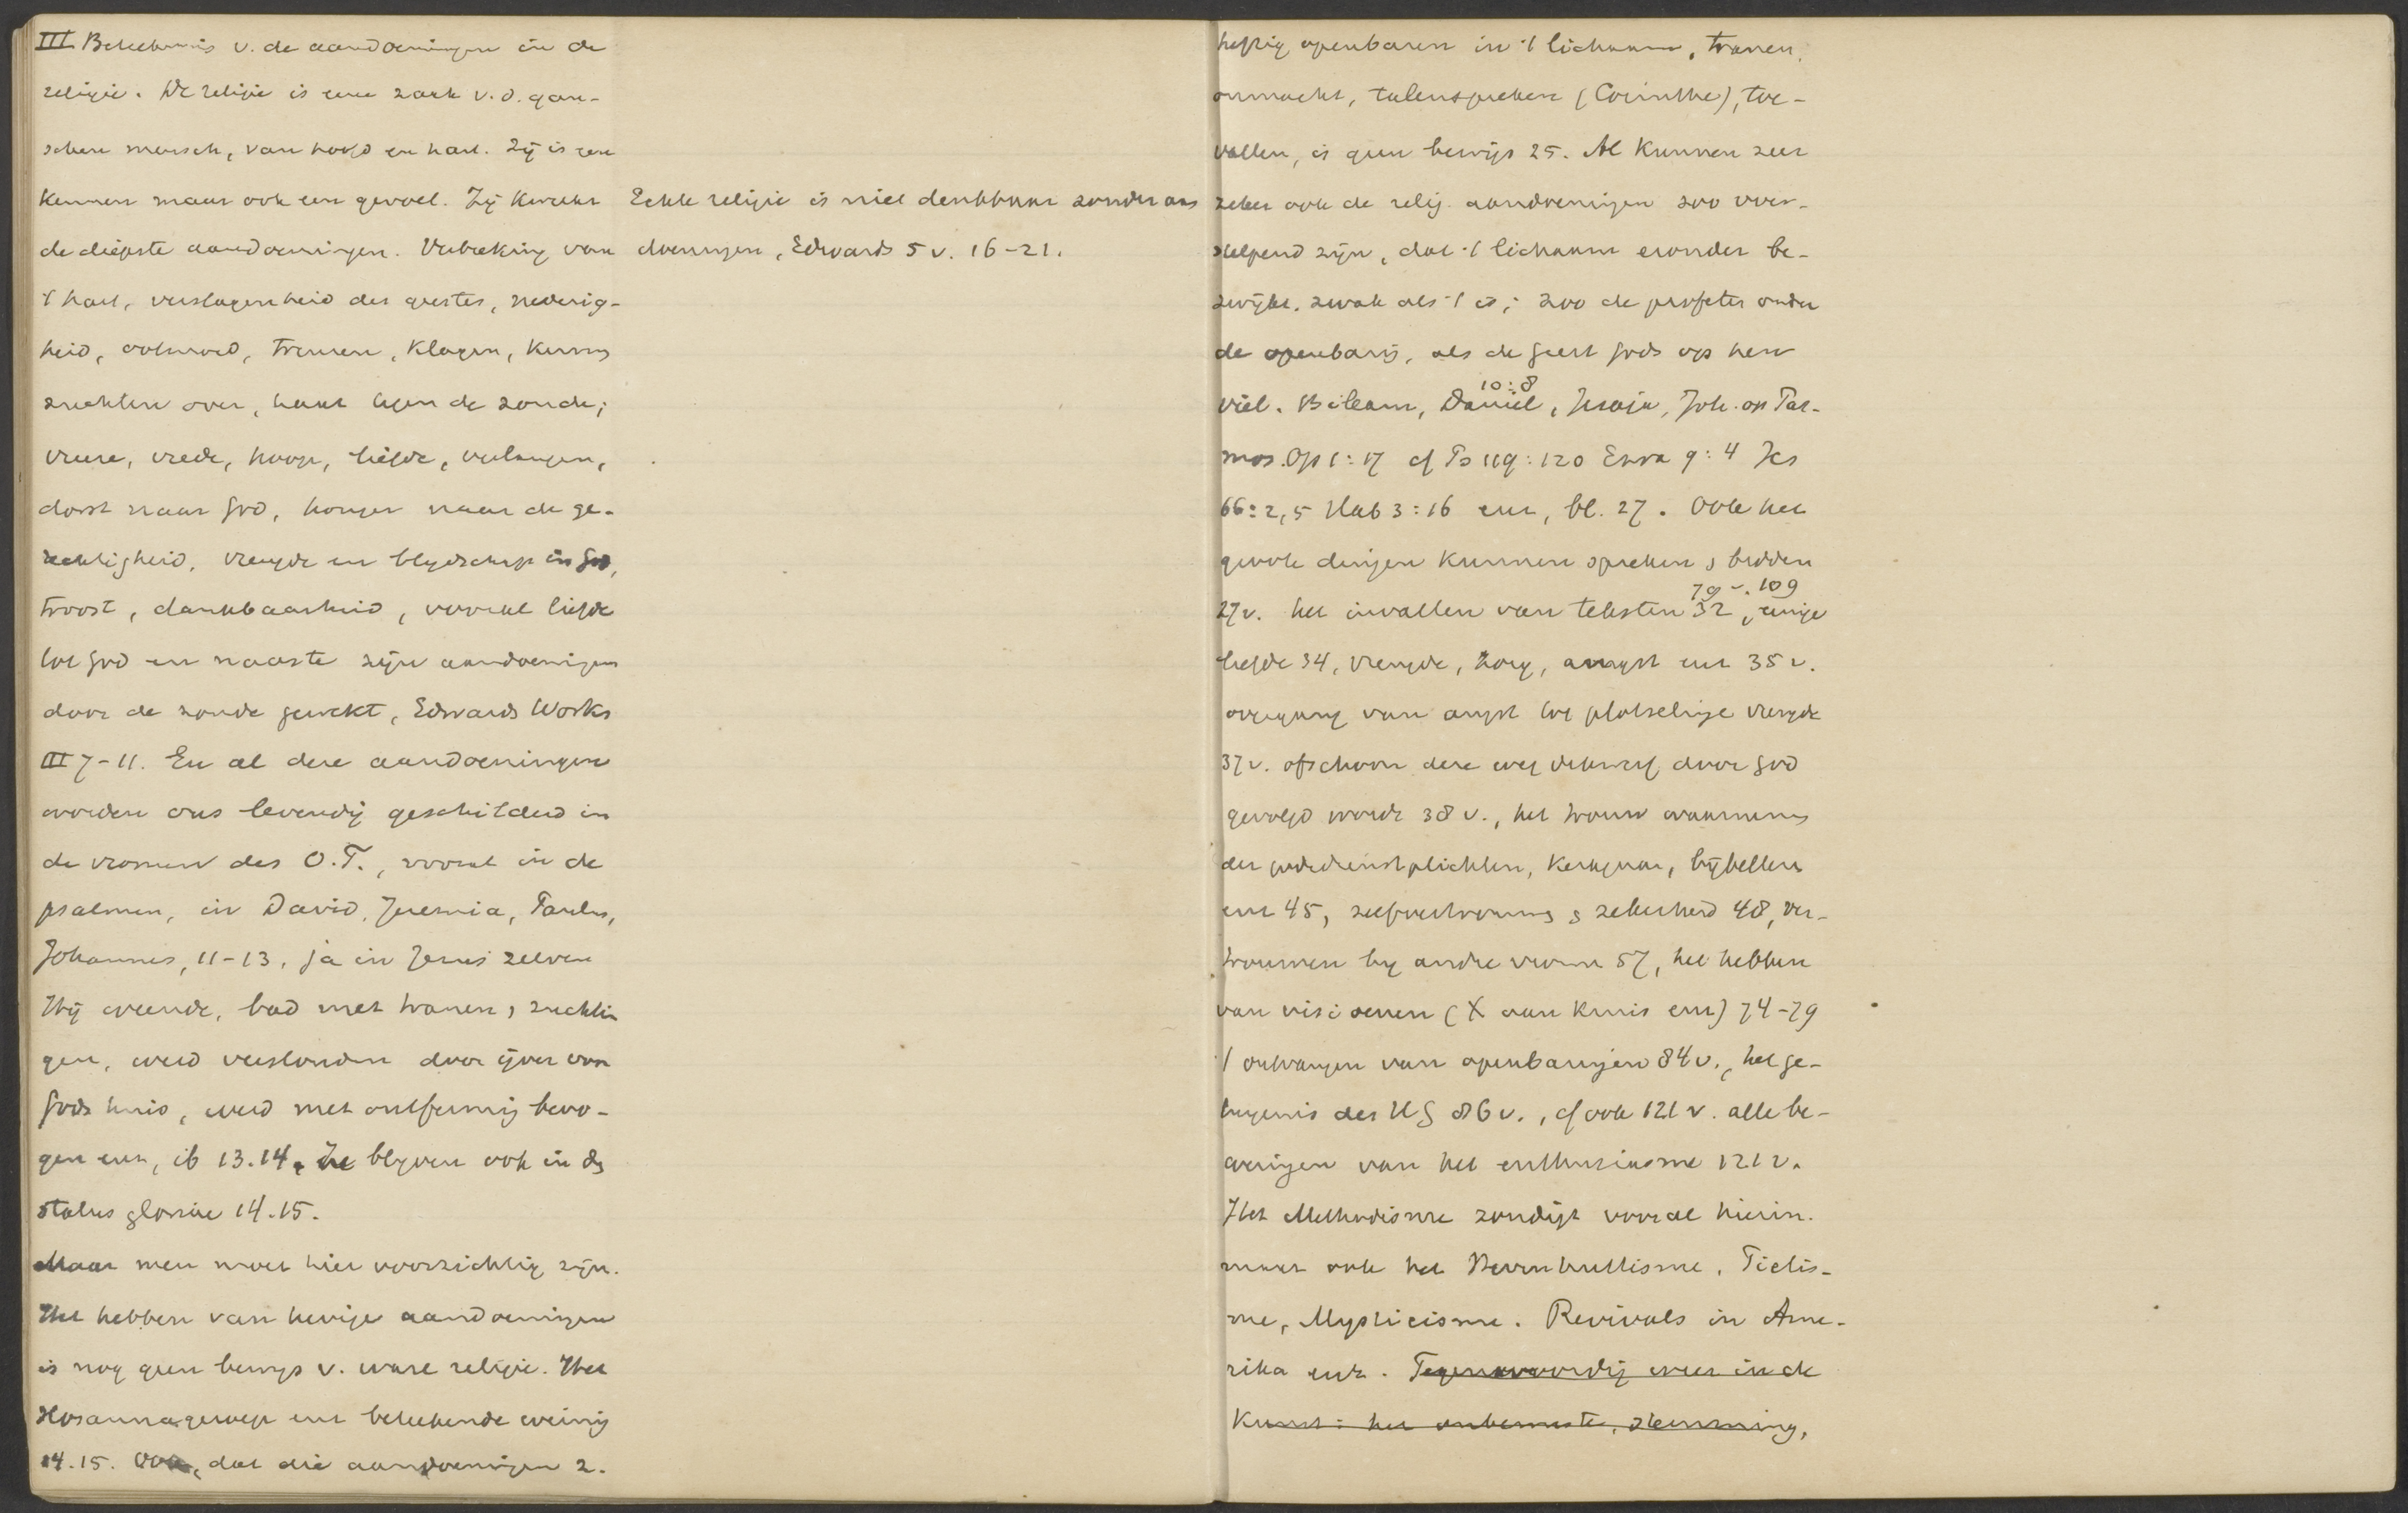 III Beteekenis v. de aandoeningen in de
religie. De religie is eene zaak v.d. gan-
schen mensch, van hoofd en hart. Zij is een
kennen maar ook een gevoel. Zij kweekt
de diepste aandoeningen. Verbreking van
't hart, verslagenheid des geestes, nederig-
heid, ootmoed, treuren, klagen, kermen
zuchten over, haat tegen de zonde;
vreeze, vrede, hoop, liefde, verlangen,
dorst naar God, honger naar de ge-
rechtigheid, vreugde en blijdschap in God,
troost, dankbaarheid, vooral liefde
tot God en naaste zijn aandoeningen
door de zonde gewekt, Edwards Works
III 7-11. En al deze aandoeningen
worden ons levendig geschilderd in
de vromen des O.T., vooral in de
psalmen, in David, Jeremia, Paulus,
Johannes, 11-13, ja in Jezus zelven
Hij weende, bad met tranen, zuchtin
gen, werd verslonden door ijver van
Gods huis, werd met ontferming bewo-
gen enz, ib 13.14. Ze blijven ook in de
status gloriae 14.15.
Maar men moet hier voorzichtig zijn.
Het hebben van hevige aandoeningen
is nog geen bewijs v. ware religie. Het
Hosannageroep enz beteekende weinig
14.15. Ook, dat die aandoeningen z.
Echte religie is niet denkbaar zonder aan
doeningen, Edwards 5 v. 16-21.
heftig openbaren in 't lichaam, tranen,
onmacht, talenspreken (Corinthe), toe-
vallen, is geen bewijs 25. Al kunnen zeer
zeker ook de relig. aandoeningen zoo over-
stelpend zijn, dat 't lichaam eronder be-
zwijkt, zwak als 't is; zoo de profeten onder
de openbaring, als de Geest Gods op hen
viel. Bileam, Daniël 10:8, Jesaja, Joh. op Pat-
mos. Op 1:17 cf Ps 119:120 Ezra 9:4 Jes
66:2,5 Hab 3:16 enz, bl. 27. Ook het
groote dingen kunnen spreken, bidden
27v. het invallen van teksten 32, 79 v. 109 eenige
liefde 34, vreugde, hoop, angst enz 35 v.
overgang van angst tot plotselinge vreugde
37v. ofschoon deze weg dikwerf door God
gevolgd wordt 38 v., het trouw waarnemen
der godsdienstplichten, kerkgaan, bijbellezen
enz 45, zelfvertrouwen, zekerheid 48, ver-
trouwen bij andre vromen 57, het hebben
van visioenen (X aan kruis enz) 74-79
't ontvangen van openbaringen 84v., het ge-
tuigenis des HG 86v., cf ook 121 v. alle be-
weringen van het enthusiasme 121 v.
Het Methodisme zondigt vooral hierin.
maar ook het Hernhuttisme, Piëtis-
me, Mysticisme. Revivals in Ame-
rika enz. Tegenwoordig weer in de
Kunst: het onbewuste, stemming,